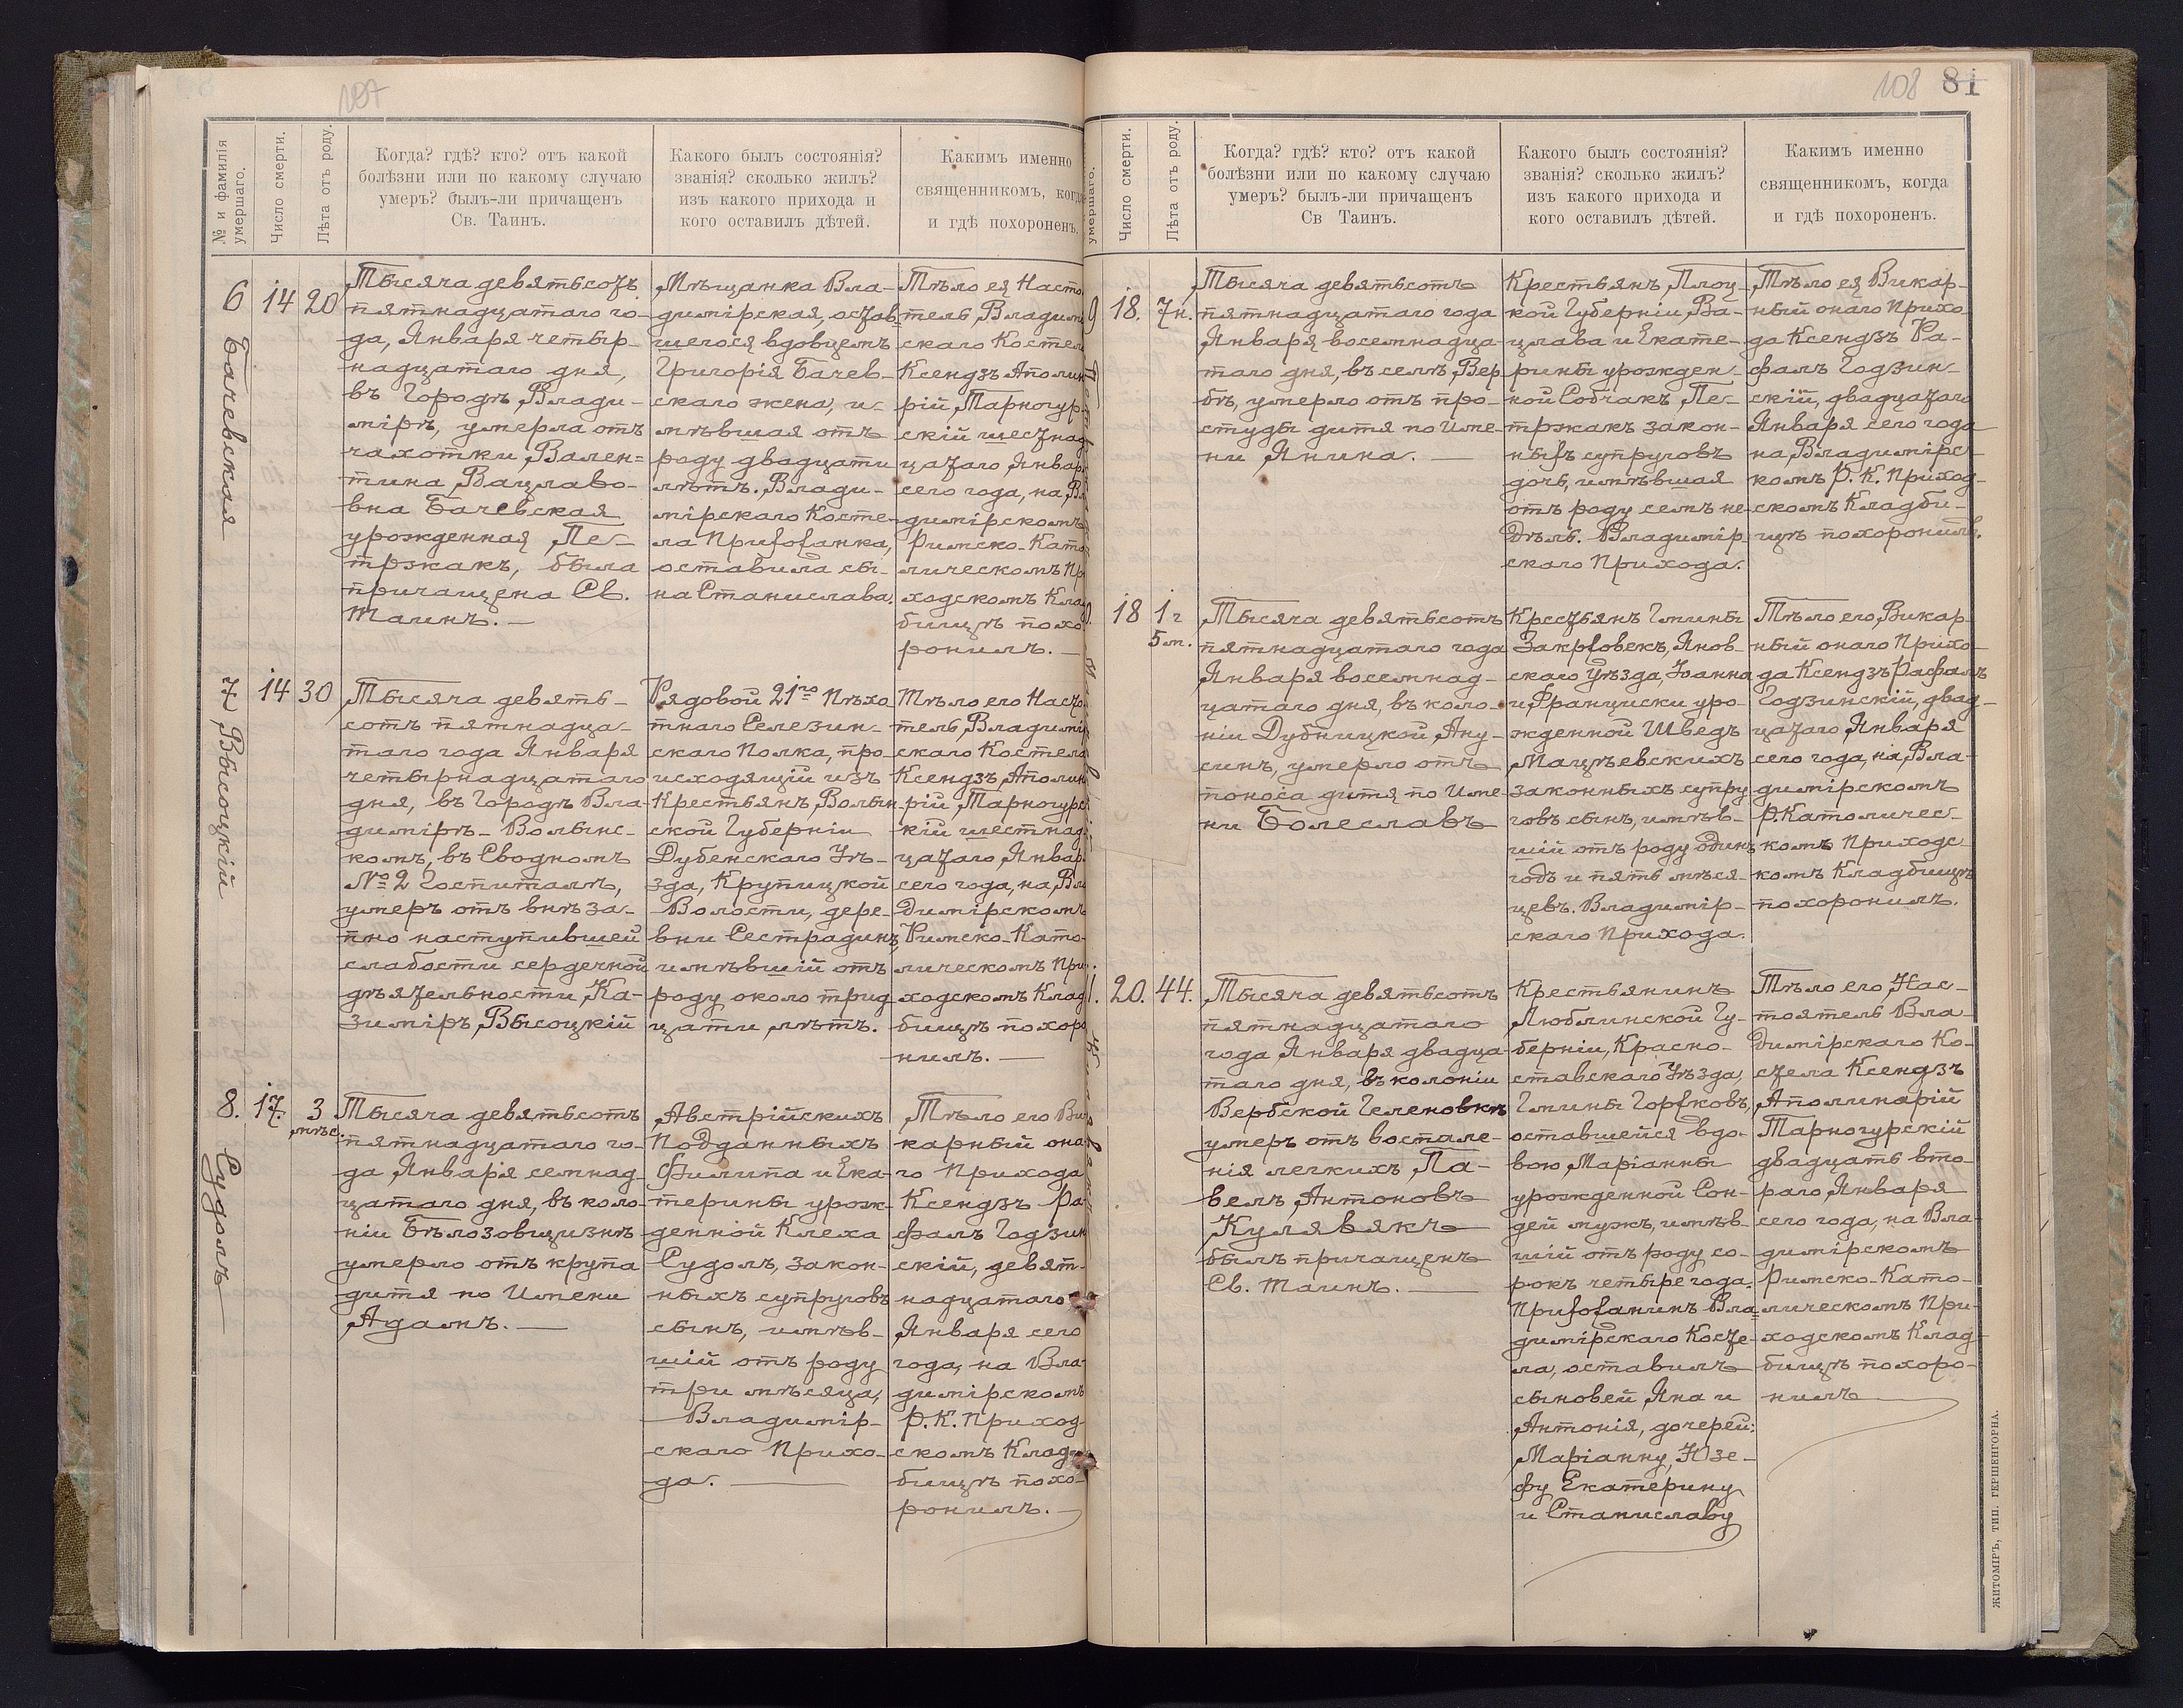 107
№ и фамилія умершаго.
Число смерти.
Лѣта отъ роду.
Когда? гдѣ? кто? отъ какой
болѣзни или по какому случаю
умеръ? былъ-ли причащенъ
Св. Таинъ.
Какого былъ состоянія?
званія? сколько жилъ?
изъ какого прихода и
кого оставилъ дѣтей.
Какимъ именно
священникомъ, когда
и гдѣ похороненъ.
6
Бачевская
14
20
Тысяча девятьсотъ
пятнадцатаго го-
да, Января четыр-
надцатаго дня,
въ Городѣ Влади-
мірѣ, умерла отъ
чахотки Вален=
тина Вацлаво-
вна Бачевская
урожденная Пе-
тржакъ, была
причащена Св.
Таинъ. —
Мѣщанка Вла-
димірская, остав-
шегося вдовцемъ
Григорія Бачев-
скаго жена, и-
мѣвшая отъ
роду двадцати
лѣтъ. Влади-
мірскаго Косте-
ла Прихожанка,
оставила сы-
на Станислава.
Тѣло ея Насто
тель Владими
скаго Костел
Ксендзъ Аполин
рій Тарногур-
скій шестнад
цатаго Январ
сего года, на Вл
димірскомъ
Римско-Като
лическомъ Пр
ходскомъ Клад
бищѣ похо-
ронилъ. —
7
Высоцкій
14
30
Тысяча девять-
сотъ пятнадца-
таго года Января
четырнадцатаго
дня, въ Городѣ Вла-
димірѣ-Волынс-
комъ, въ Сводномъ
№ 2 Госпиталѣ,
умеръ отъ внѣза-
пно наступившей
слабости сердечной
дѣятельности Ка-
зиміръ Высоцкій
Рядовой 21го Пѣхо
тнаго Селезин-
скаго Полка, про-
исходящій изъ
Крестьянъ Волын-
ской Губерніи
Дубенскаго Уѣ-
зда, Крупицкой
Волости, дере-
вни Сестрадинъ,
имѣвшій отъ
роду около трид
цати лѣтъ.
Тѣло его Насто
тель Владимір
скаго Костела
Ксендзъ Аполин
рій Тарногурс
кій шестнад
цатаго Январ
сего года, на Вла
димірскомъ
Римско-Като-
лическомъ При
ходскомъ Клад
бищѣ похоро
нилъ. —
8.
Судолъ
17.
3
мѣс.
Тысяча девятьсотъ
пятнадцатаго го-
да Января семнад-
цатаго дня, въ коло-
ніи Бѣлозовщизнѣ
умерло отъ крупа
дитя по Имени
Адамъ. —
Австрійскихъ
Подданныхъ
Филипа и Ека-
терины урож-
денной Клеха
Судолъ, закон-
ныхъ супруговъ
сынъ, имѣв-
шій отъ роду
три мѣсяца,
Владимір-
скаго Прихо-
да. —
Тѣло его Ви
карный она
го Прихода
Ксендзъ Ра
фалъ Годзин
скій, девят-
надцатаго
Января сего
года, на Вла-
димірскомъ
Р. К. Приход-
скомъ Клад
бищѣ похо-
ронилъ. —
108
81
умершаго.
Число смерти.
Лѣта отъ роду.
Когда? гдѣ? кто? отъ какой
болѣзни или по какому случаю
умеръ? былъ-ли причащенъ
Св Таинъ.
Какого былъ состоянія?
званія? сколько жилъ?
изъ какого прихода и
кого оставилъ дѣтей.
Какимъ именно
священникомъ, когда
и гдѣ похороненъ.
9
18.
7 н.
Тысяча девятьсотъ
пятнадцатаго года
Января восемнадца-
таго дня, въ селѣ Вер
бѣ, умерло отъ про-
студы дитя по Име-
ни Янина. —
Крестьянъ Плоц-
кой Губерніи, Ва-
цлава и Екате-
рины урожден-
ной Собчакъ Пе-
тржакъ закон-
ныхъ супруговъ
дочь, имѣвшая
отъ роду семь не-
дѣль. Владимір
скаго Прихода.
Тѣло ея Викар-
ный онаго Прихо-
да Ксендзъ Ра-
фалъ Годзин-
скій, двадцатаго
Января сего года
на Владимірс-
комъ Р. К. Приход-
скомъ Кладби-
щѣ похоронилъ.
18
1 г
5 м.
Тысяча девятьсотъ
пятнадцатаго года
Января восемнад-
цатаго дня, въ коло-
ніи Дубницкой Ану-
синъ, умерло отъ
поноса дитя по Име-
ни Болеславъ
Крестьянъ Гмины
Закржовекъ, Янов-
скаго Уѣзда, Іоанна
и Францишки уро-
жденной Шведъ
Мацѣевскихъ
законныхъ супру
говъ сынъ, имѣв-
шій отъ роду одинъ
годъ и пять мѣся-
цевъ. Владимір-
скаго Прихода.
Тѣло его, Викар-
ный онаго Прихо-
да Ксендзъ Рафалъ
Годзинскій, двад-
цатаго Января
сего года, на Вла-
димірскомъ
Р. Католичес-
комъ Приходс-
комъ Кладбищѣ
похоронилъ.
20.
44.
Тысяча девятьсотъ
пятнадцатаго
года Января двадца-
таго дня, въ колоніи
Вербской Геленовкѣ
умеръ отъ воспале-
нія легкихъ Па-
велъ Антоновъ
Кулявякъ
былъ причащенъ
Св. Таинъ. —
Крестьянинъ
Люблинской Гу-
берніи, Красно-
ставскаго Уѣзда,
Гмины Горжковъ,
оставшейся вдо-
вою Маріанны
урожденной Сон-
дей мужъ, имѣв-
шій отъ роду со-
рокъ четыре года.
Прихожанинъ Вла-
димірскаго Косте-
ла, оставилъ
сыновей Яна и
Антонія, дочерей:
Маріанну, Юзе-
фу Екатерину
и Станиславу
Тѣло его, Нас-
тоятель Вла-
димірскаго Ко-
стела Ксендзъ
Аполинарій
Тарногурскій
двадцать вто-
раго Января
сего года, на Вла-
димірскомъ
Римско-Като-
лическомъ При-
ходскомъ Клад-
бищѣ похоро-
нилъ
ЖИТОМІРЪ, ТИП. ГЕРШЕНГОРНА.